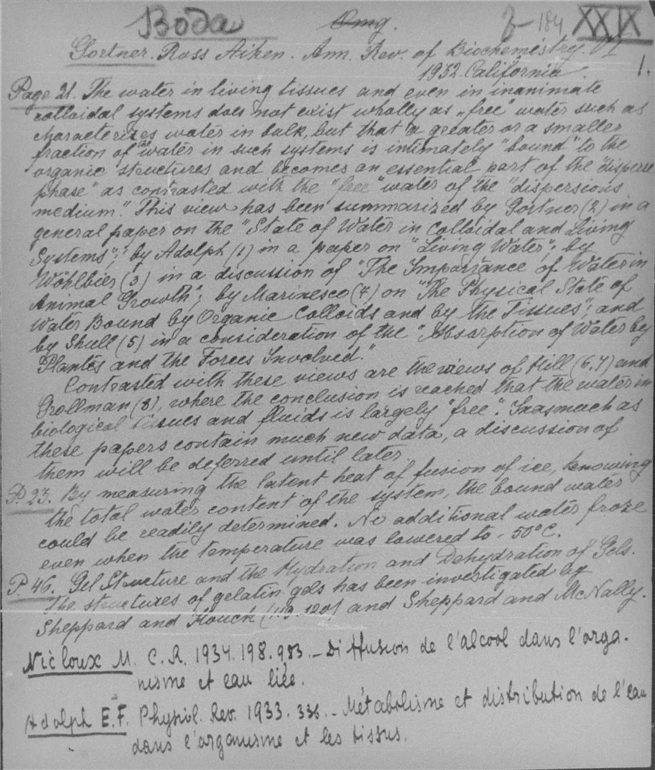 Boda
XXIX
Gortner. Ross Aiken. Ann. Rev. of Biochemistry. VI
1932 California. 1.
Page 21. The water in living tissues and even in inanimate
colloidal systems does not exist wholly as „free" water such as
characterizes water in bulk, but that a greater or a smaller
fraction of the water in such systems is intimately "bound" to the
organic structures and becomes an essential part of the "disperse
phase" as contrasted with the "free" water of the "dispersions
medium." This view has been summarized by Gortner (2) in a
general paper on the "State of Water in Colloidal and Living
Systems"; by Adolph (1) in a paper on "Living Water"; by
Wöhlbier (3) in a discussion of "The Importance of Water in
Animal Growth"; by Marinesco (4) on "The Physical State of
Water Bound by Organic Colloids and by the Tissues"; and
by Shull (5) in a consideration of the "Absorption of Water by
Plantes and the Forces Involved."
Contrasted with these views are the views of Hill (6,7) and
Grollman (8), where the conclusion is reached that the water in
biological tissues and fluids is largely "free". Inasmuch as
these papers contain much new data, a discussion of
them will be deferred until later.
P. 23. By measuring the latent heat of fusion of ice, knowing
the total water content of the system, the bound water
could be readily determined. No additional water froze
even when the temperature was lowered to -50°C.
P. 46. Gel Structure and the Hydration and Dehydration of Gels.
The structures of gelatin gels has been investigated by
Sheppard and Houck (119. 120) and Sheppard and McNally.
Nicloux M. C. R. 1934. 198. 983. — Diffusion de l'alcool dans l'orga-
nisme et eau liée.
Adolph E.F. Physiol. Rev. 1933. 336. — Métabolisme et distribution de l'eau
dans l'organisme et les tissus.